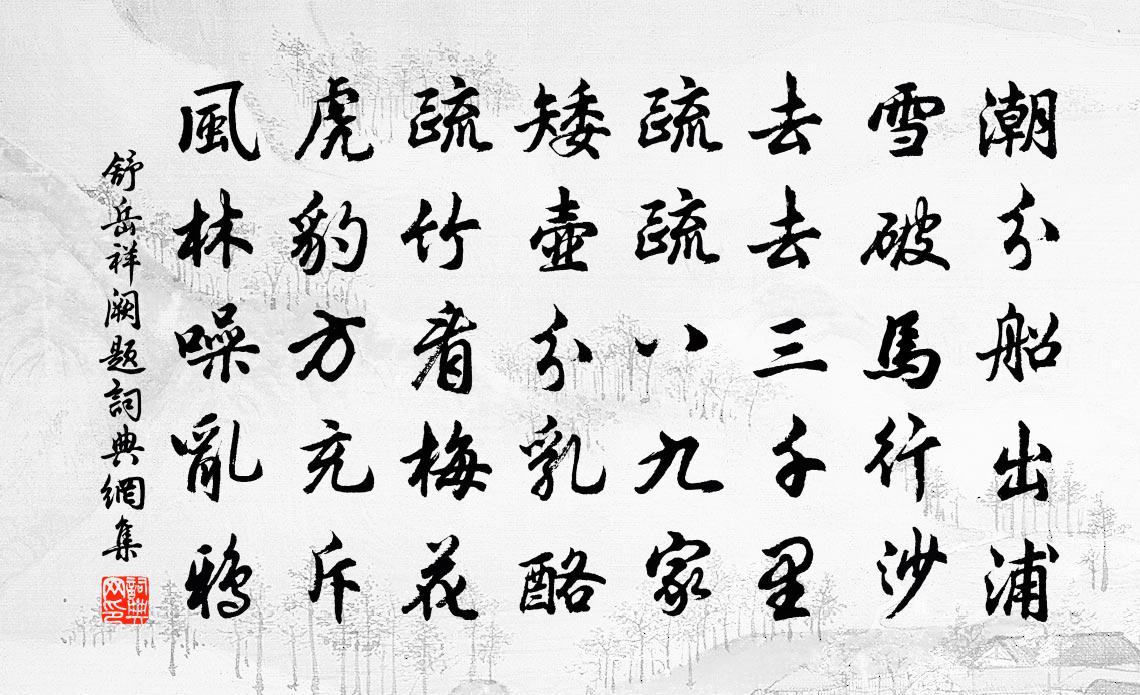 潮分船出浦
雪破馬行沙
去去三千里
疏疏八九家
矮壺分乳酪
疏竹看梅花
虎豹方充斥
風林噪亂鴉
舒岳祥闕題詞典網集
詞典網印